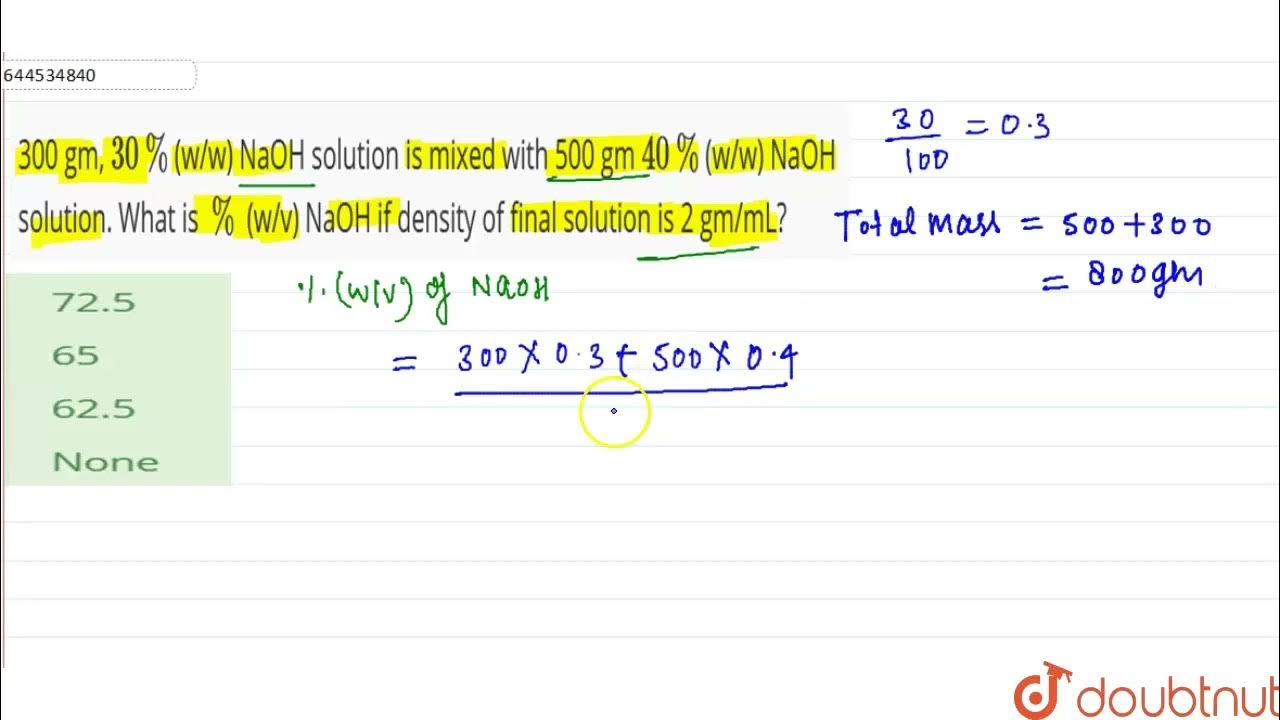 644534840
300 gm, 30% (w/w) NaOH solution is mixed with 500 gm 40% (w/w) NaOH
solution. What is % (w/v) NaOH if density of final solution is 2 gm/mL?
72.5
65
62.5
None
30/100 = 0.3
Total mass = 500+300
= 800gm
%(w/v) of NaOH
= 300 X 0.3 + 500 X 0.4
doubtnut